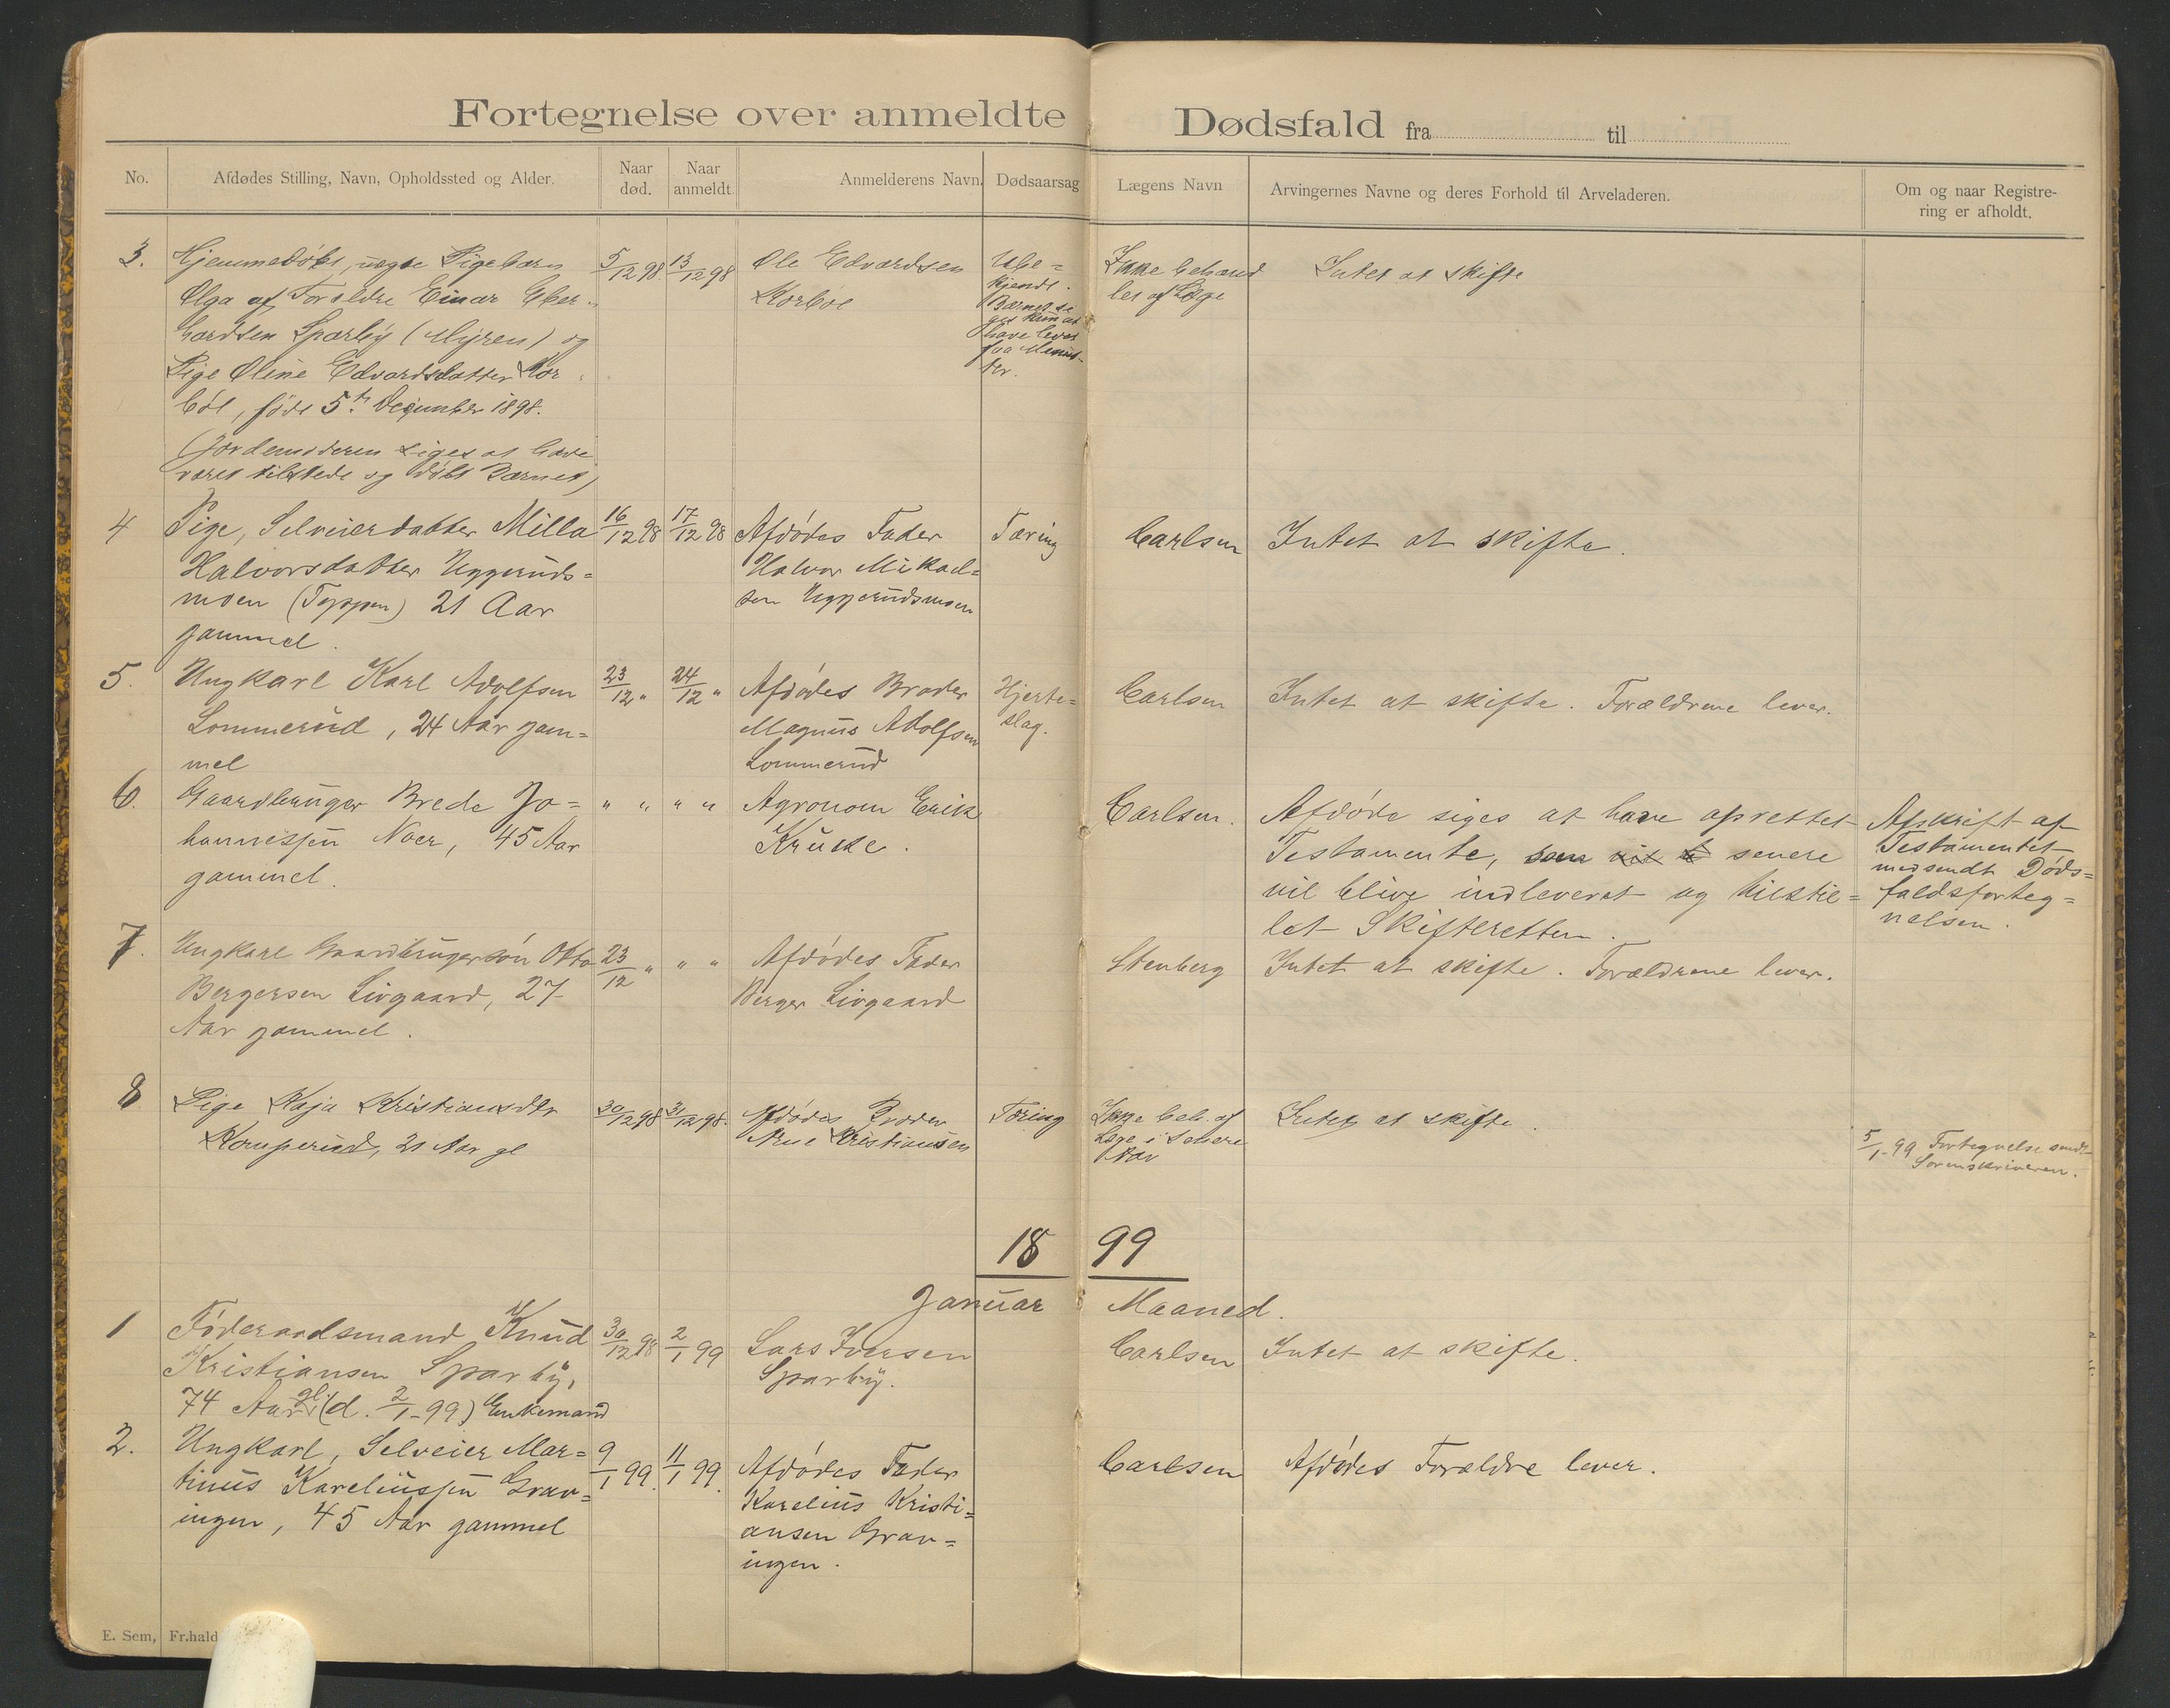 Fortegnelse over anmeldte Dødsfald fra til
No.
Afdødes Stilling, Navn, Opholdssted og Alder.
Naar død.
Naar anmeldt.
Anmelderens Navn.
Dødsaarsag
Lægens Navn
Arvingernes Navne og deres Forhold til Arveladeren.
Om og naar Registre-
ring er afholdt.
3.
Hjemmedøbt, uægte Pigebarn
Olga af Forældre Einar Eber-
hardsen Sparby (Myren) og
Pige Oline Edvardsdatter Kor-
bøl, født 5te December 1898.
(Jordemoderen siges at have
været tilstede og døbt Barnet)
5/12 98.
13/12 98
Ole Edvardsen
Korbøl
Ube=
kjendt.
Barnet si
ges kun at
have levet
faa Minut-
ter.
Ikke behand
let af Læge
Intet at skifte
4
Pige, Selveierdatter Milla
Halvorsdatter Uggeruds=
moen (Toppen) 21 Aar
gammel.
16/12 98
17/12 98
Afdødes Fader
Halvor Mikael=
sen Uggerudsmoen
Tæring
Carlsen
Intet at skifte.
5.
Ungkarl Karl Adolfsen
Lommerud, 24 Aar gam=
mel
23/12 "
24/12 "
Afdødes Broder
Magnus Adolfsen
Lommerud
Hjerte=
slag.
Carlsen
Intet at skifte. Forældrene lever.
6.
Gaardbruger Brede Jo=
hannessen Noer, 45 Aar
gammel.
" "
" "
Agronom Erik
Krücke.
Carlsen.
Afdøde siges at have oprettet
Testamente, som vil senere
vil blive indleveret og tilstil=
let Skifteretten.
Afskrift af
Testamentet
medsendt Døds=
faldsforteg=
nelsen.
7.
Ungkarl Gaardbrugersøn Otto
Bergersen Livgaard, 27
Aar gammel.
23/12 "
" "
Afdødes Fader
Berger Livgaard
Stenberg
Intet at skifte. Forældrene lever.
8
Pige Kaja Kristiansdtr
Komperud, 21 Aar gl
30/12 98
31/12 98.
Afdødes Broder
Arne Kristiansen
Tæring
Ikke beh. af
Læge i senere
Aar
Intet at skifte.
5/1-99 Fortegnelse sendt
Sorenskriveren.
18 99
Januar Maaned.
1
Føderaadsmand Knud
Kristiansen Sparby,
74 Aar gl. (d. 2/1-99) Enkemand
30/12 98
2/1 99
Lars Iversen
Sparby.
Carlsen
Intet at skifte.
2.
Ungkarl, Selveier Mar=
tinus Kareliussen Grav=
ingen, 45 Aar gammel
9/1 99.
11/1 99.
Afdødes Fader
Karelius Kristi=
ansen Grav=
ingen.
Carlsen
Afdødes Forældre lever.
E. Sem, Fr.hald